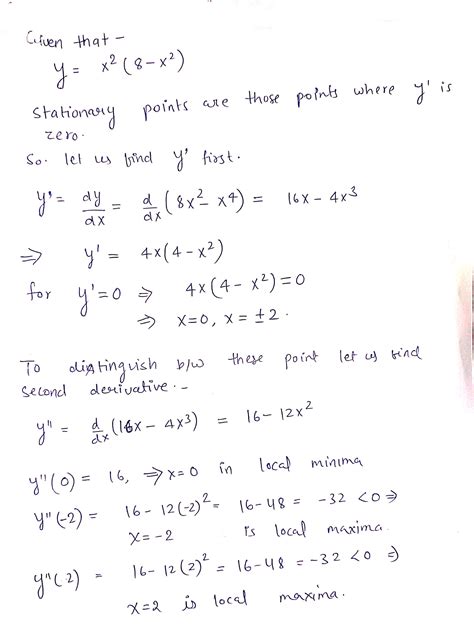 Given that -
y = x² (8 - x²)
stationary points are those points where y' is
zero.
So. let us find y' first.
y' = dy/dx = d/dx (8x² - x⁴) = 16x - 4x³
⇒ y' = 4x(4 - x²)
for y'=0 ⇒ 4x(4 - x²)=0
⇒ x=0, x = ±2.
To distinguish b/w these point let us find
second derivative. -
y'' = d/dx (16x - 4x³) = 16 - 12x²
y''(0) = 16, ⇒ x=0 in local minima
y''(-2) = 16 - 12(-2)² = 16 - 48 = -32 <0 ⇒
x = -2 is local maxima.
y''(2) = 16 - 12(2)² = 16 - 48 = -32 <0 ⇒
x=2 is local maxima.